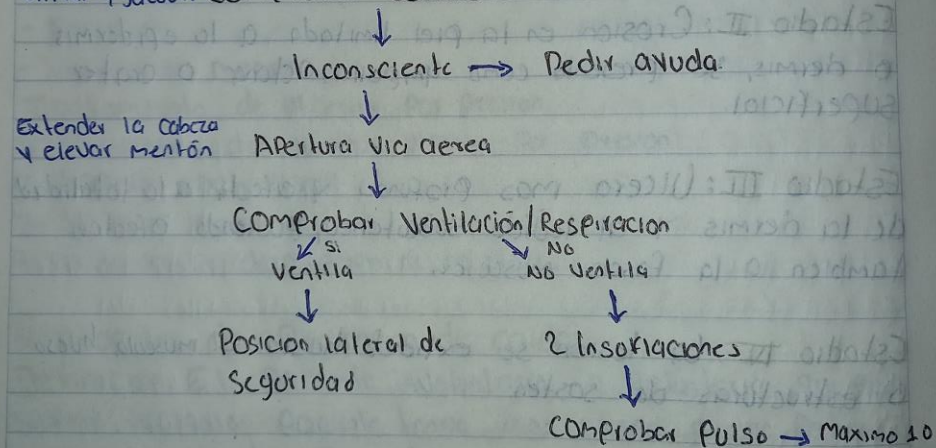 Inconsciente → Pedir ayuda
Extender la cabeza
y elevar mentón
Apertura via aerea
Comprobar Ventilación/Respiracion
Si
No
Ventila
No Ventila
Posicion lateral de
Seguridad
2 Insoflaciones
Comprobar Pulso → Maximo 10